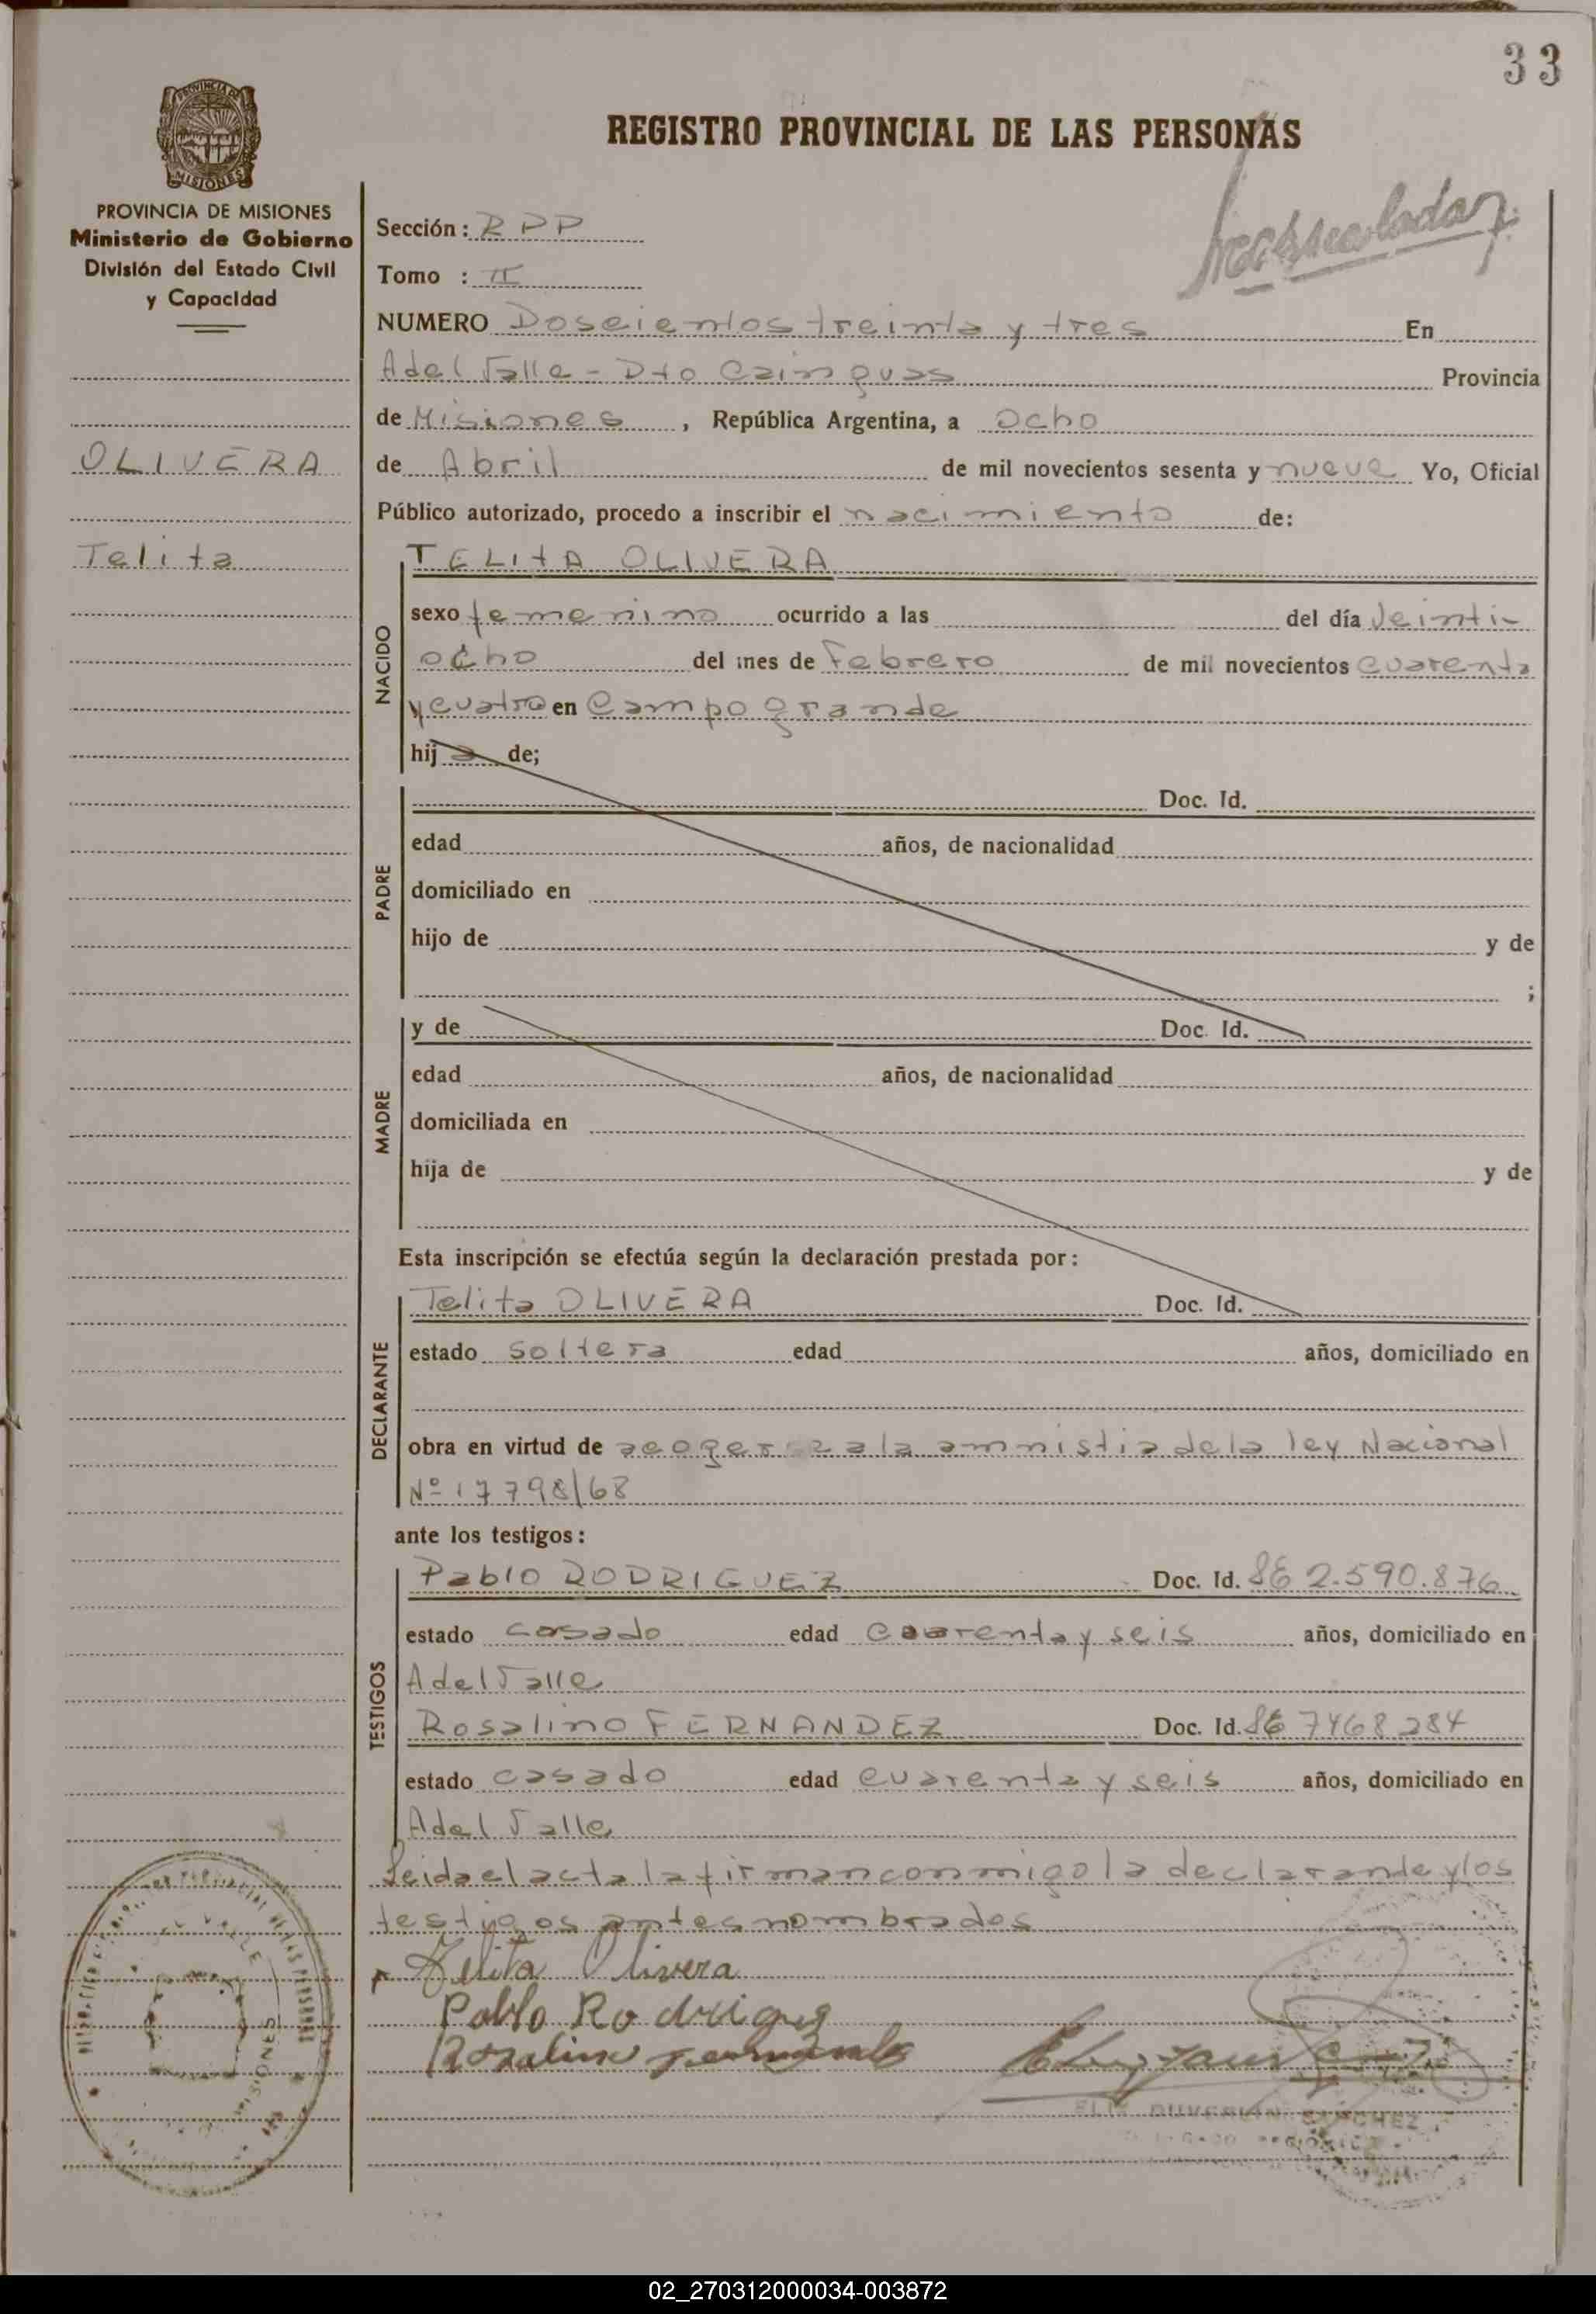 33
REGISTRO PROVINCIAL DE LAS PERSONAS
PROVINCIA DE MISIONES
Ministerio de Gobierno
División del Estado Civil
y Capacidad
OLIVERA
Telita
Sección: RPP
Tomo : II
NUMERO Doscientos treinta y tres En
Adel Valle - Dto Cainguas Provincia
de Misiones, República Argentina, a ocho
de Abril de mil novecientos sesenta y nueve Yo, Oficial
Público autorizado, procedo a inscribir el nacimiento de:
NACIDO
TELITA OLIVERA
sexo femenino ocurrido a las del día Veinti-
ocho del mes de Febrero de mil novecientos cuarenta
y cuatro en Campo grande
hij a de;
PADRE
Doc. Id.
edad años, de nacionalidad
domiciliado en
hijo de y de
;
MADRE
y de Doc. Id.
edad años, de nacionalidad
domiciliada en
hija de y de
Esta inscripción se efectúa según la declaración prestada por:
DECLARANTE
Telita OLIVERA Doc. Id.
estado soltera edad años, domiciliado en
obra en virtud de acogerse a la amnistia de la ley Nacional
Nº 17798/68
ante los testigos:
TESTIGOS
Pablo RODRIGUEZ Doc. Id. 2.590.876
estado casado edad cuarenta y seis años, domiciliado en
Adel Valle
Rosalino FERNANDEZ Doc. Id. 7468284
estado casado edad cuarenta y seis años, domiciliado en
Adel Valle
Leida el acta la firman conmigo la declarande y los
testigos antes nombrados
Telita Olivera
Pablo Rodriguez
Rozalino Fernandez
SANCHEZ
02_270312000034-003872